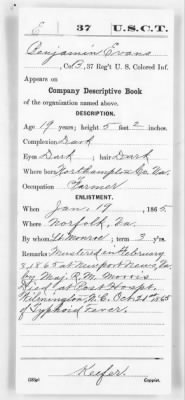 E 37 U.S.C.T.
Benjamin Evans
, Co. B, 37 Reg't U. S. Colored Inf.
Appears on
Company Descriptive Book
of the organization named above.
DESCRIPTION.
Age 19 years; height 5 feet 2 inches.
Complexion Dark
Eyes Dark ; hair Dark
Where born Northampton Co. Va.
Occupation Farmer
ENLISTMENT.
When Jan. 19 , 1865
Where Norfolk, Va.
By whom Lt. Monroe ; term 3 y'rs.
Remarks Mustered in February
3, 1865 at Newport News, Va.
by Maj. R. M. Morris
Died at Post Hospt.
Wilmington, N.C. Oct 21st 1865
of Typhoid Fever.
Keefer
Copyist.